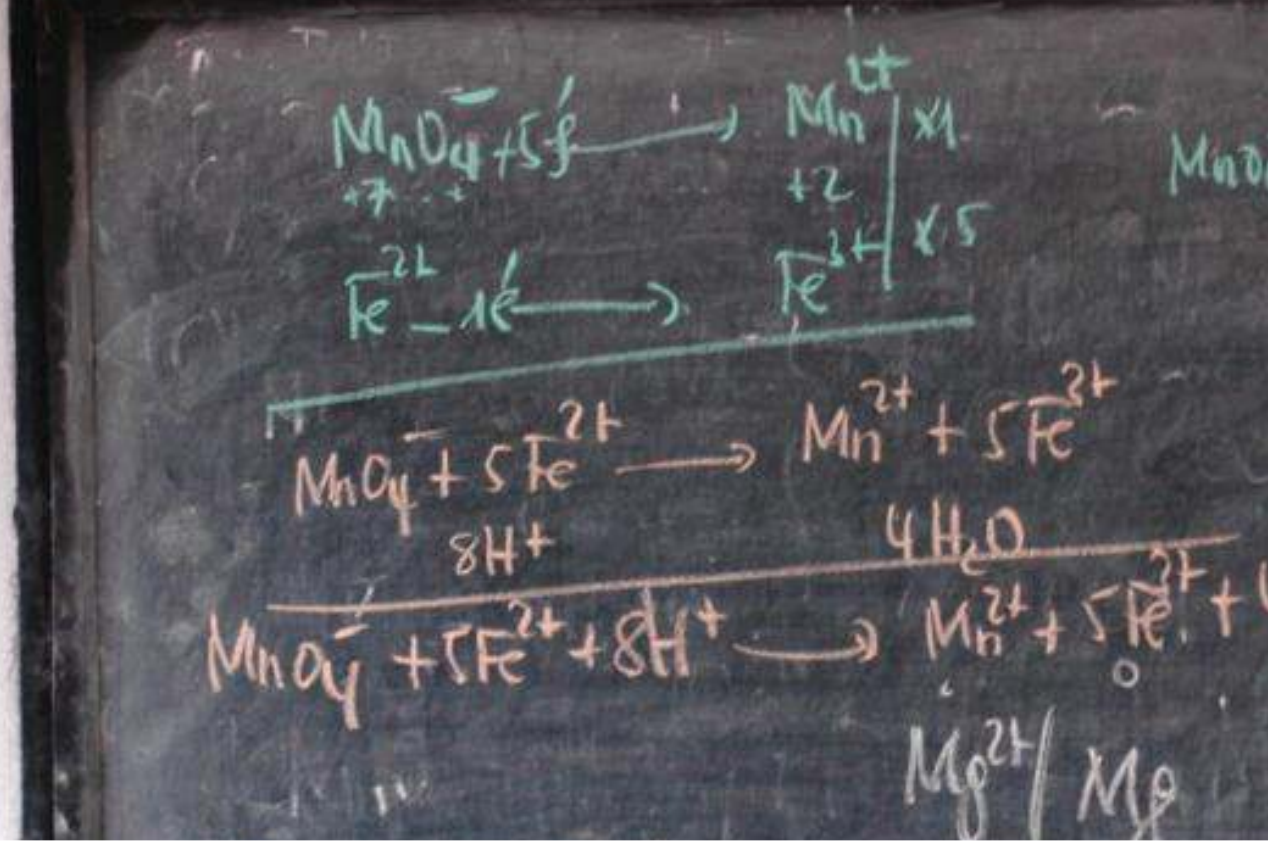 MnO₄⁻ + 5é ⟶ Mn²⁺ | ×1
+7 +2
Fe²⁺ – 1é ⟶ Fe³⁺ | ×5
MnO₄⁻ + 5Fe²⁺ ⟶ Mn²⁺ + 5Fe³⁺
8H⁺ 4H₂O
MnO₄⁻ + 5Fe²⁺ + 8H⁺ ⟶ Mn²⁺ + 5Fe³⁺ +
Mg²⁺/Mg